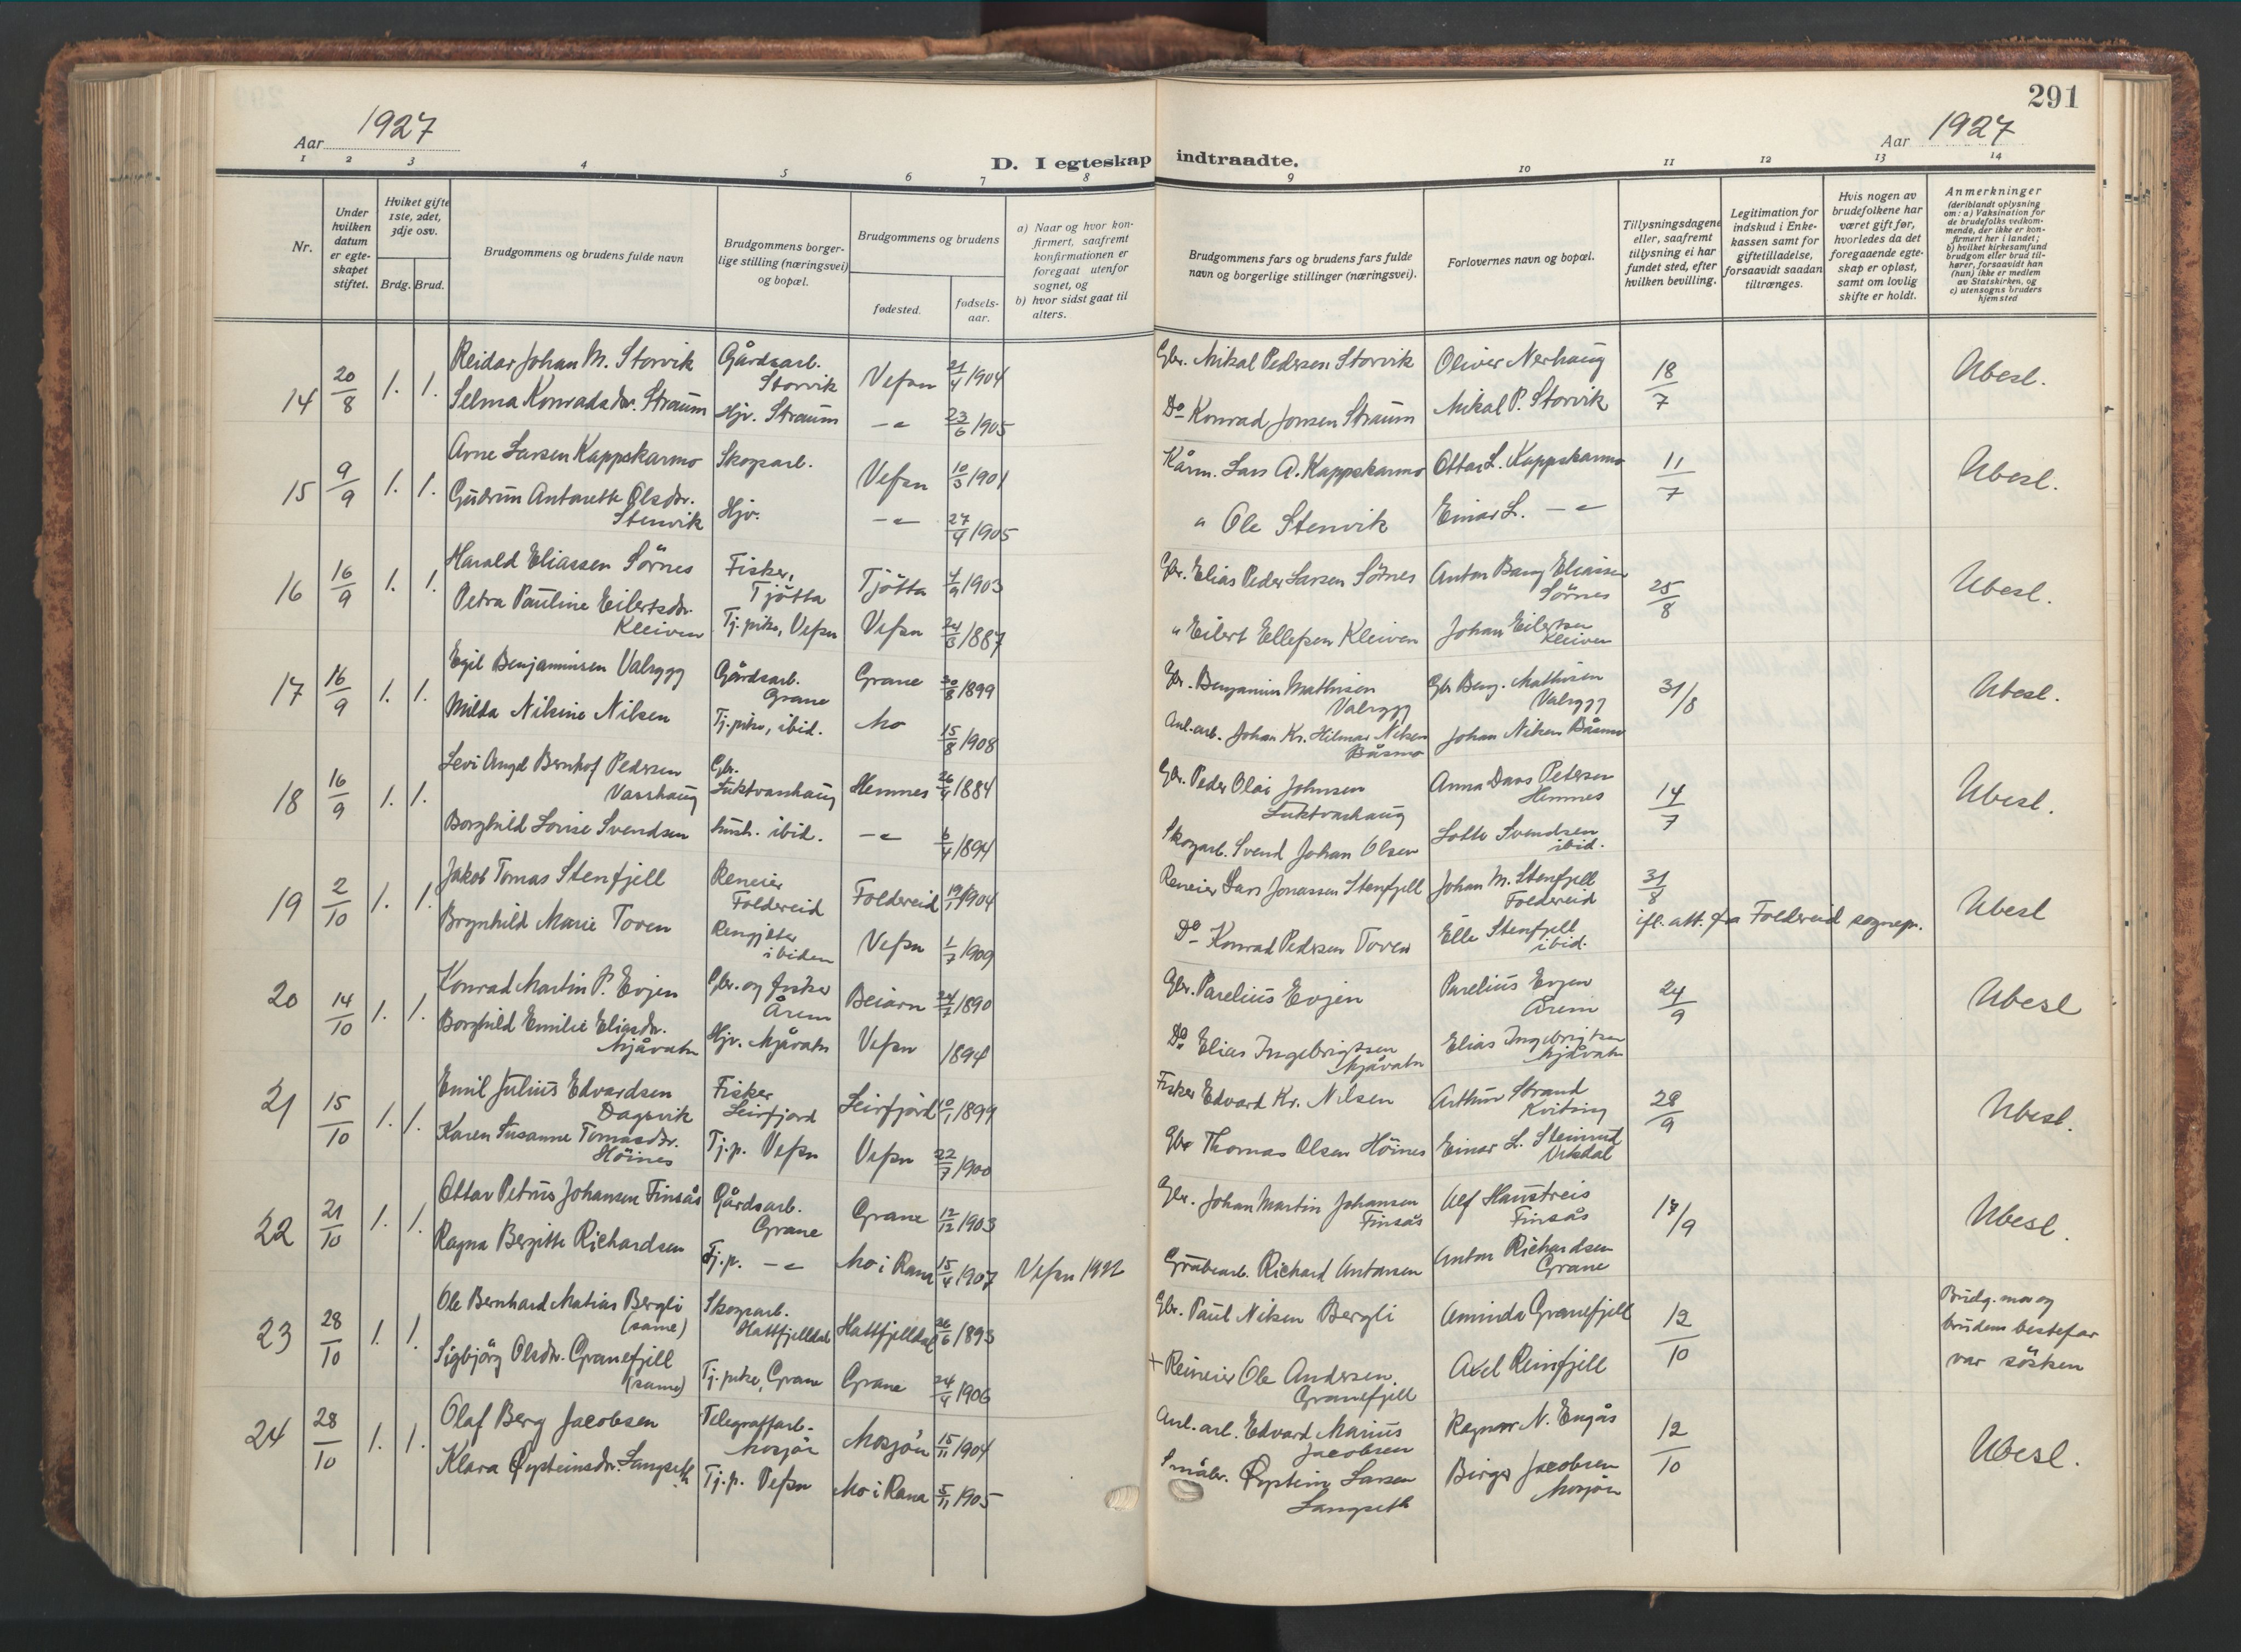 291
Aar 1927
Aar 1927
D. I egteskap indtraadte.
1 2 3 4 5 6 7 8 9 10 11 12 13 14
Nr.
Under hvilken datum er egteskapet stiftet.
Hviket gifte 1ste, 2det, 3dje osv.
Brdg. Brud.
Brudgommens og brudens fulde navn
Brudgommens borgerlige stilling (næringsvei) og bopæl.
Brudgommens og brudens
fødested.
fødselsaar.
a) Naar og hvor konfirmert, saafremt konfirmationen er foregaat utenfor sognet, og
b) hvor sidst gaat til alters.
Brudgommens fars og brudens fars fulde navn og borgerlige stillinger (næringsvei).
Forlovernes navn og bopæl.
Tillysningsdagene eller, saafremt tillysning ei har fundet sted, efter hvilken bevilling.
Legitimation for indskud i Enkekassen samt for giftetilladelse, forsaavidt saadan tiltrænges.
Hvis nogen av brudefolkene har været gift før, hvorledes da det foregaaende egteskap er opløst, samt om lovlig skifte er holdt.
Anmerkninger
(deriblandt oplysning om: a) Vaksination for de brudefolks vedkommende, der ikke er konfirmert her i landet; b) hvilket kirkesamfund brudgom eller brud tilhører, forsaavidt han (hun) ikke er medlem av Statskirken, og c) utensogns bruders hjemsted
14 20/8 1. 1. Reidar Johan M. Storvik Gårdsarb. Storvik Vefsn 21/4 1904 Gbr. Mikal Pedersen Storvik Oliver Nerhaug 18/7 Ubesl.
Selma Konradsdr. Straum Hjv. Straum -"- 23/6 1905 Do Konrad Jonsen Straum Mikal P. Storvik
15 9/9 1. 1. Arne Larsen Kappskarmo Skogsarb. Vefsn 10/3 1901 Kårm. Lars A. Kappskarmo Ottar L. Kappskarmo 11/7 Ubesl.
Gudrun Antonette Olsdr. Stenvik Hjv. -"- 27/4 1905 " Ole Stenvik Einar L. -"-
16 16/9 1. 1. Harald Eliassen Sörnes Fisker, Tjötta Tjötta 1903 Gbr. Elias Peder Larsen Sörnes Anton Bang Eliassen Sörnes 25/8 Ubesl.
Petra Pauline Eilertsdr. Kleiven Tj.pike, Vefsn Vefsn 1887 " Eilert Ellefsen Kleiven Johan Eilertsen Kleiven
17 16/9 1. 1. Egil Benjaminsen Valrygg Gårdsarb. Grane Grane 30/8 1899 Gbr. Benjamin Mathisen Valrygg Gbr Benj. Mathisen Valrygg 31/8 Ubesl.
Milda Nilsine Nilsen Tj.pike, ibid. Mo 15/8 1908 Anl.arb. Johan Kr. Hilmar Nilsen Båsmo Johan Nilsen Båsmo
18 16/9 1. 1. Levi Angel Bernhof Pedersen Vasshaug Gbr. Luktvashaug Hemnes 26/4 1884 Gbr. Peder Olai Johnsen Luktvashaug Anna Daas Petersen Hemnes 14/7 Ubesl.
Borghild Lovise Svendsen hush. ibid. -"- 6/4 1894 Skogarb. Svend Johan Olsen Lotte Svendsen ibid.
19 2/10 1. 1. Jakob Tomas Stenfjell Reneier Foldereid Foldereid 1904 Reneier Lars Jonassen Stenfjell Johan M. Stenfjell Foldereid 31/8 Ubesl
Brynhild Marie Toven Rengjeter ibidem Vefsn 1/7 1909 Do Konrad Pedersen Toven Elle Stenfjell ibid. ifl. att. fra Foldereid sognepr.
20 14/10 1. 1. Konrad Martin P. Evjen Gbr. og fisker Årem Beiarn 24/7 1890 Gbr. Parelius Evjen Parelius Evjen Årem 24/9 Ubesl
Borghild Emilie Eliasdr. Mjåvatn Hjv. Mjåvatn Vefsn 1894 Do Elias Ingebrigtsen Mjåvatn Elias Ingebrigtsen Mjåvatn
21 15/10 1. 1. Emil Julius Edvardsen Dagsvik Fisker Leirfjord Leirfjord 10/1 1899 Fisker Edvard Kr. Nilsen Arthur Strand Kvitting 28/9 Ubesl.
Karen Susanne Tomasdr. Höines Tj.p. Vefsn Vefsn 22/7 1900 Gbr Thomas Olsen Höines Einar L.
22 21/10 1. 1. Ottar Petrus Johansen Finsås Gårdsarb. Grane Grane 12/12 1903 Gbr. Johan Martin Johansen Finsås Alf Haustreis Finsås 17/9 Ubesl.
Ragna Bergitte Richardsen Tj.p. -"- Mo i Rana 15/4 1907 Vefsn 1922 Grubearb. Richard Antonsen Anton Richardsen Grane
23 28/10 1. 1. Ole Bernhard Matias Bergli (same) Skogsarb. Hattfjelldal Hattfjelldal 26/6 1893 Gbr. Paul Nilsen Bergli Aminda Granefjell 12/10 Brudg. mor og brudens bestefar var sösken
Sigbjörg Olsdr. Granefjell (same) Tj.pike, Grane Grane 24/4 1906 + Reineier Ole Andersen Granefjell Axel Reinfjell
24 28/10 1. 1. Olaf Berg Jacobsen Telegrafarb. Mosjön Mosjön 15/11 1904 Anl.arb. Edvard Marius Jacobsen Ragnar N. Engås 12/10 Ubesl.
Klara Øysteinsdr. Langseth Tj.p. Vefsn Mo i Rana 5/11 1905 Småbr. Øystein Larsen Langseth Birger Jacobsen Mosjön